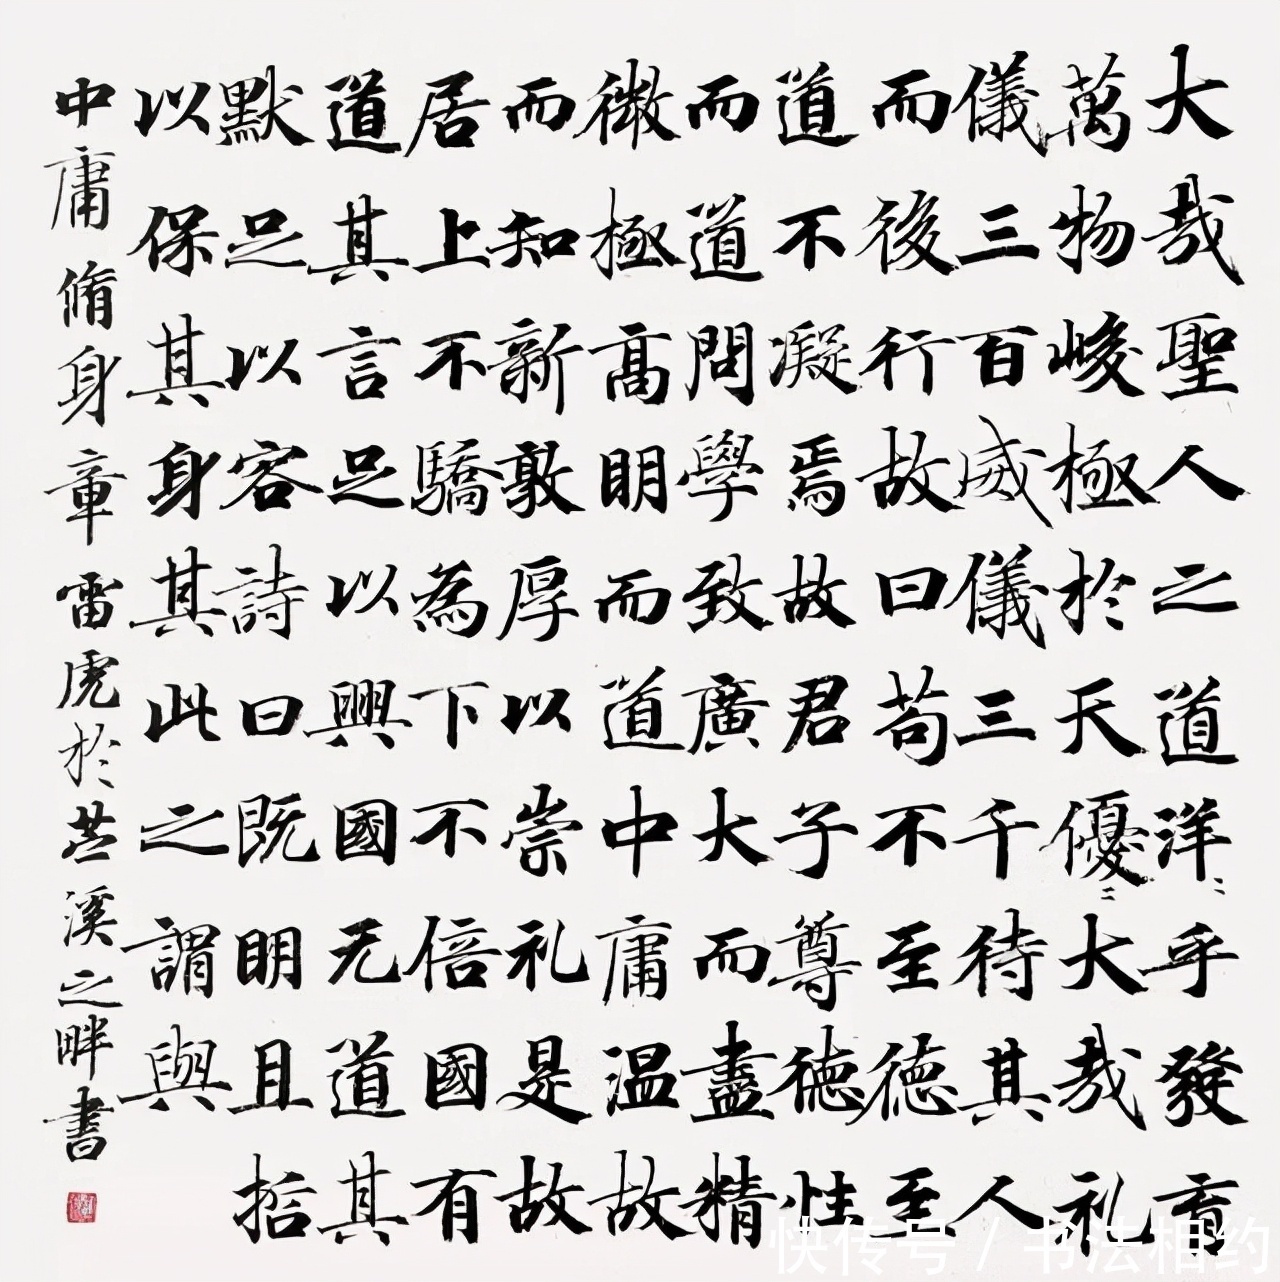 大哉聖人之道洋〻乎發育
萬物峻極於天優〻大哉礼
儀三百威儀三千待其人
而後行故曰苟不至德至
道不凝焉故君子尊德性
而道問學致廣大而盡精
微極髙明而道中庸温故
而知新敦厚以崇礼是故
居上不驕為下不倍國有
道其言足以興國无道其
默足以容詩曰既明且哲
以保其身其此之謂與
中庸脩身章雷虎於苕溪之畔書
快传号 / 书法相约